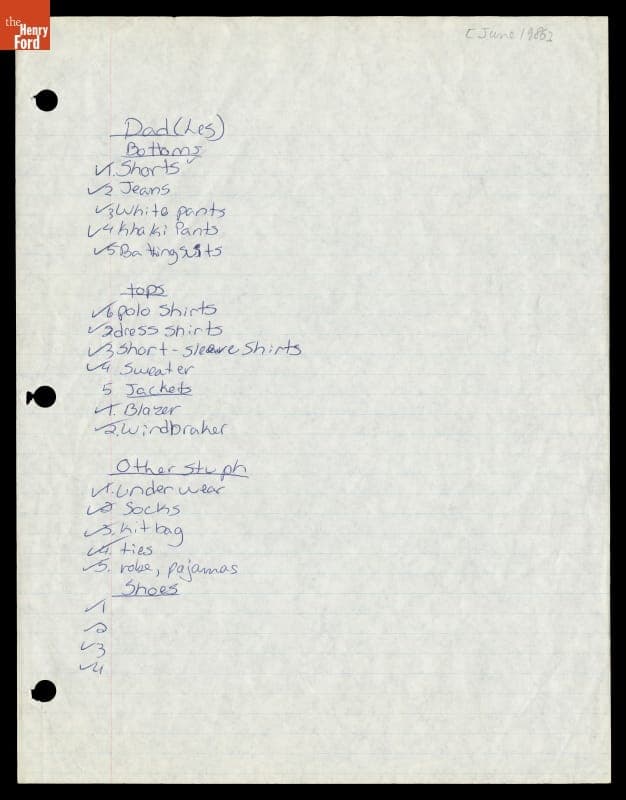 the
Henry
Ford
[June 1986]
Dad (Les)
Bottoms
✓1. Shorts
✓2 Jeans
✓3 White pants
✓4 Khaki Pants
✓5 Bathing suits
tops
✓6 polo shirts
✓2 dress shirts
✓3 Short-sleeve Shirts
✓4 Sweater
5 Jackets
✓1. Blazer
✓2. Windbraker
Other stuph
✓1. under wear
✓2 Socks
✓3. kit bag
✓4. ties
✓5. robe, pajamas
Shoes
✓1
✓2
✓3
✓4